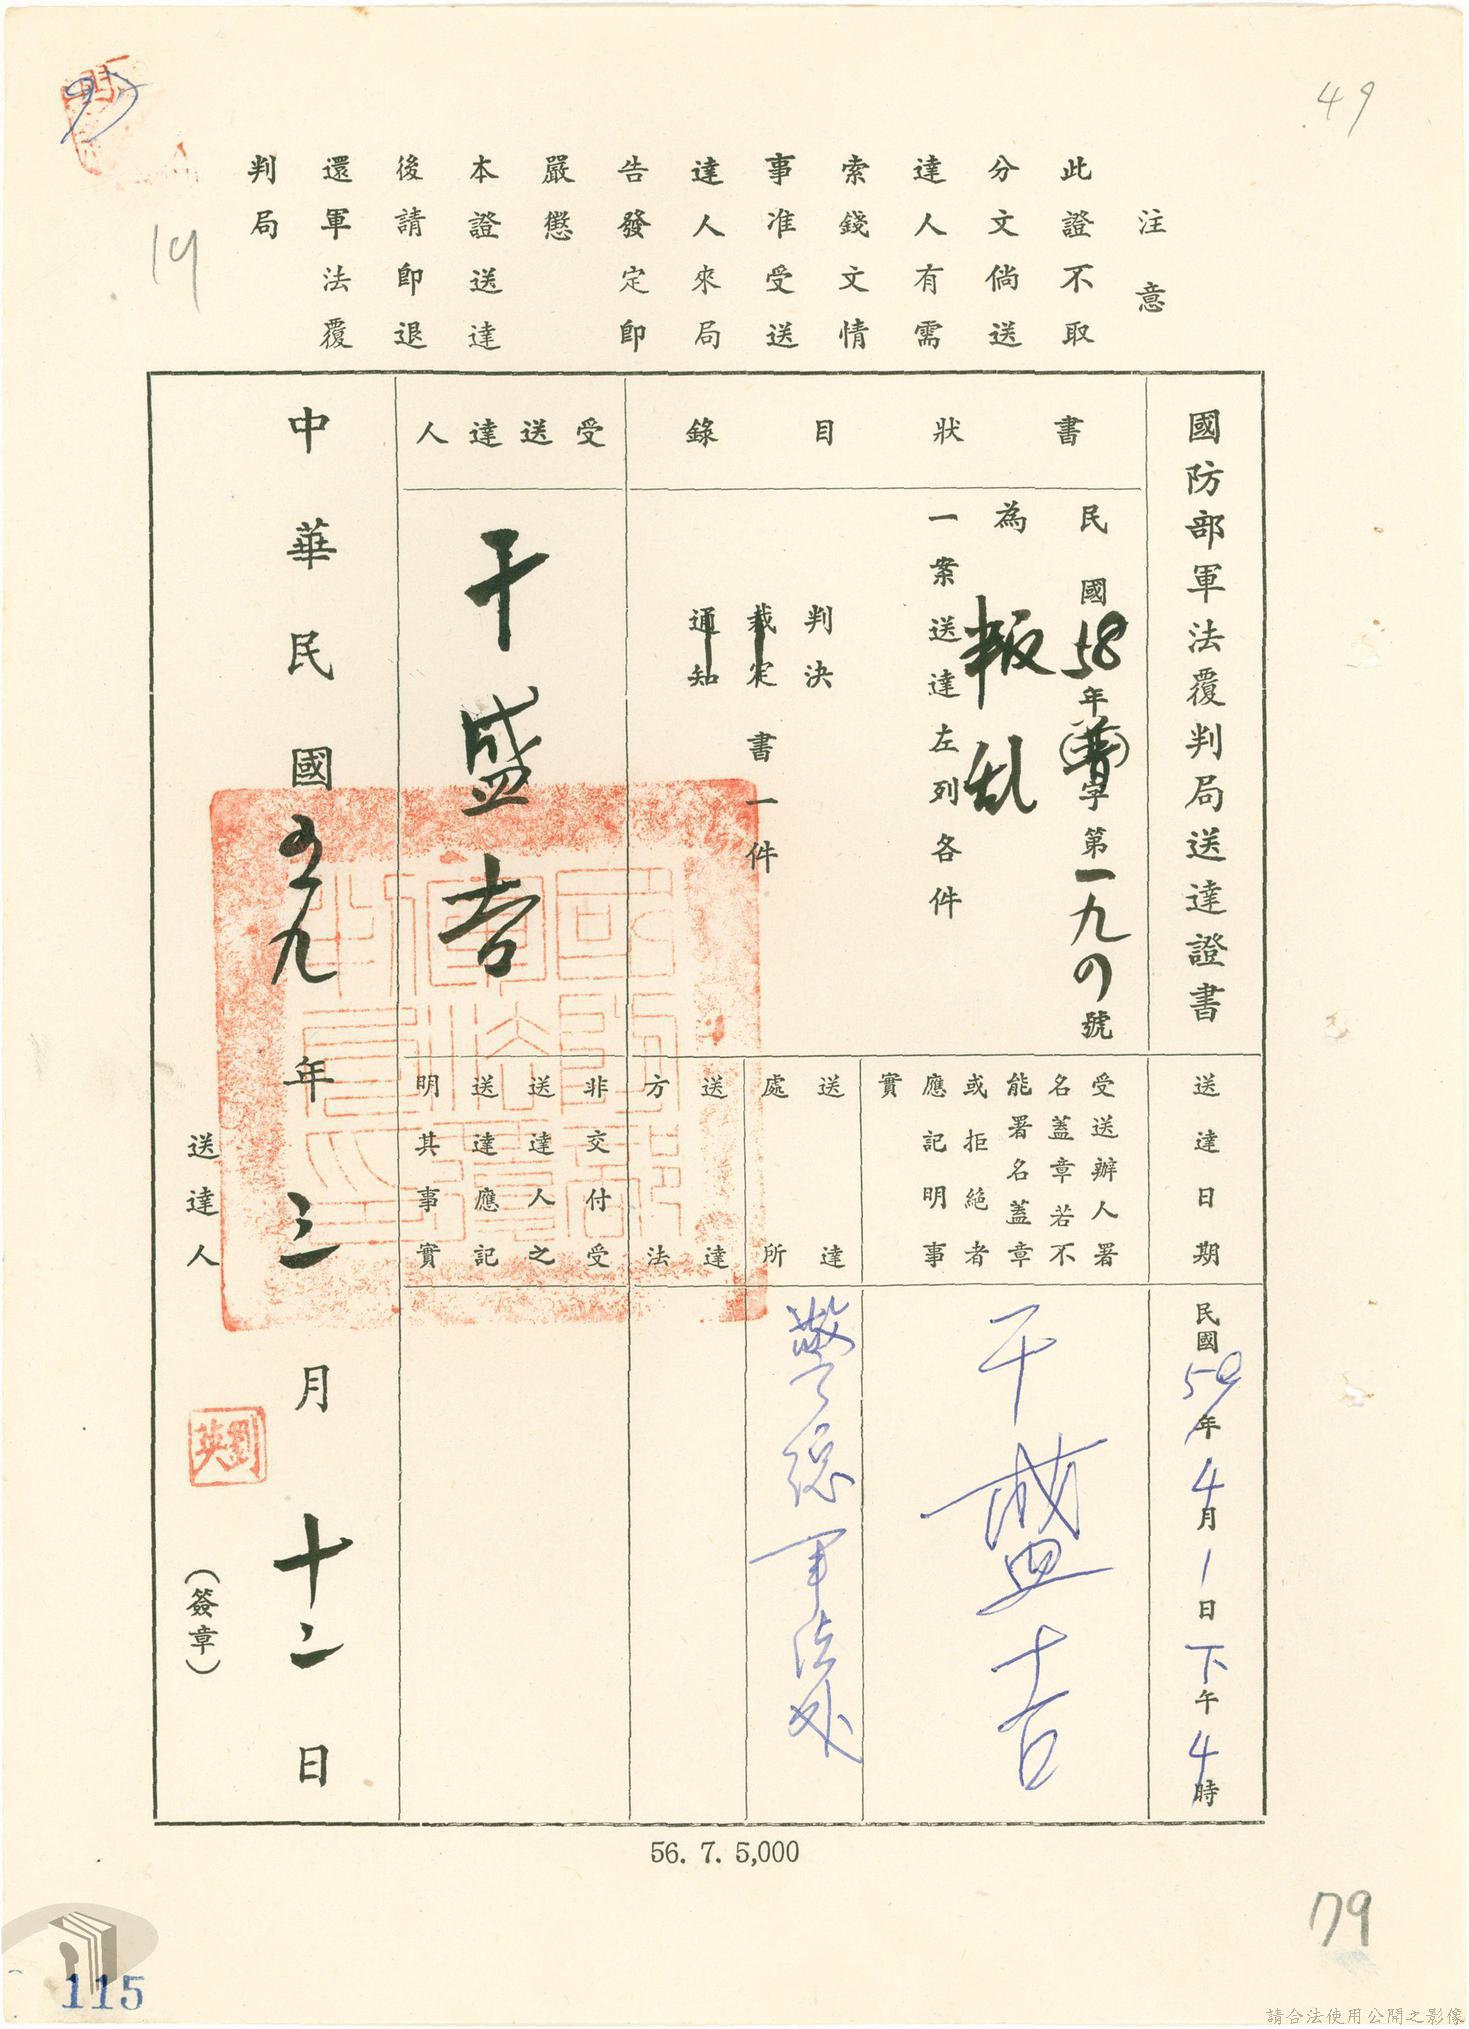 49
注意
此證不取
分文倘送
達人有需
索錢文情
事准受送
達人來局
告發定即
嚴懲
本證送達
後請即退
還軍法覆
判局
19
國防部軍法覆判局送達證書
書狀目錄
民國58年(普)字第一九〇號
為叛乱
一案送達左列各件
判決
裁定
通知
書一件
受送達人
干盛吉
送達日期
民國59年4月1日下午4時
受送辦人署
名蓋章若不
能署名蓋章
或拒絕者
應記明事
實
干盛吉
送達
處所
警總軍法處
送達
方法
非交付受
送達人之
送達應記
明其事實
中華民國五九年三月十二日
送達人
劉英
(簽章)
56. 7. 5,000
79
115
請合法使用公開之影像